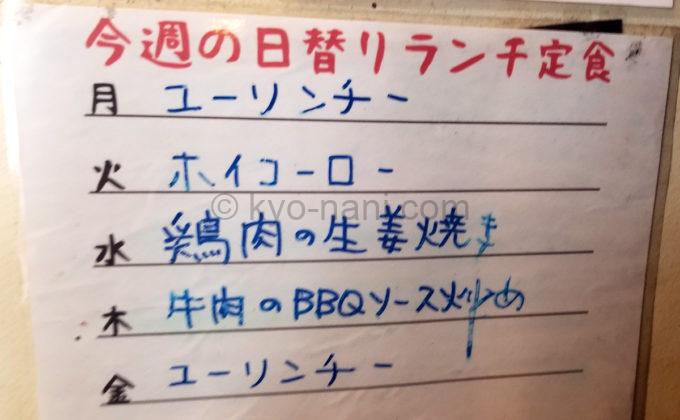 今週の日替りランチ定食
月 ユーリンチー
火 ホイコーロー
© kyo-nani.com
水 鶏肉の生姜焼き
木 牛肉のBBQソース炒め
金 ユーリンチー